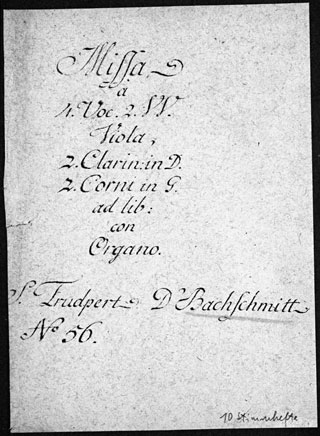 Missa
a
4. Voc. 2. VV.
Viola,
2. Clarin: in D.
2. Corni in G.
ad lib:
con
Organo.
S. Trudpert D Bachschmitt
No 56.
10 Stimmhefte